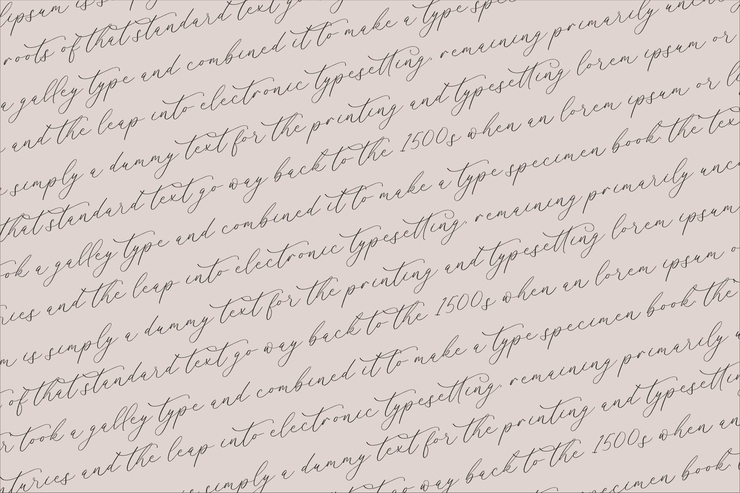 lipsum is
roots of that standard text go
a galley type and combined it to make a type
and the leap into electronic typesetting remaining primarily
simply a dummy text for the printing and typesetting lorem ipsum or
that standard text go way back to the 1500s when an lorem ipsum or
a galley type and combined it to make a type specimen book the
and the leap into electronic typesetting remaining primarily
is simply a dummy text for the printing and typesetting lorem ipsum
of that standard text go way back to the 1500s when an lorem ipsum
took a galley type and combined it to make a type specimen book the
and the leap into electronic typesetting remaining primarily
simply a dummy text for the printing and typesetting
go way back to the 1500s when an
book